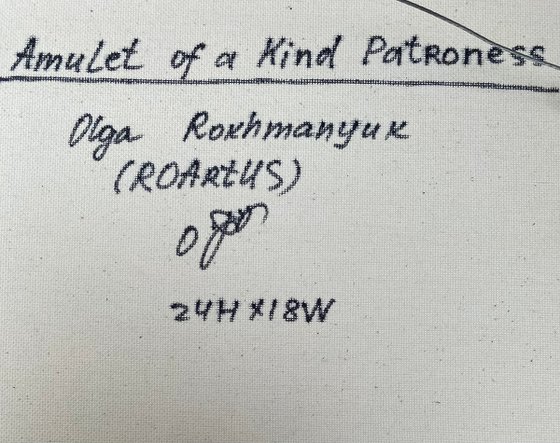 Amulet of a Kind Patroness
Olga Rokhmanyuk
(ROArtUS)
24H x 18W